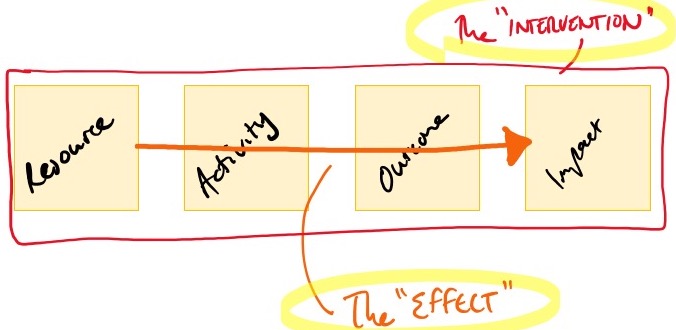 The "INTERVENTION"
Resource
Activity
Outcome
Impact
The "EFFECT"